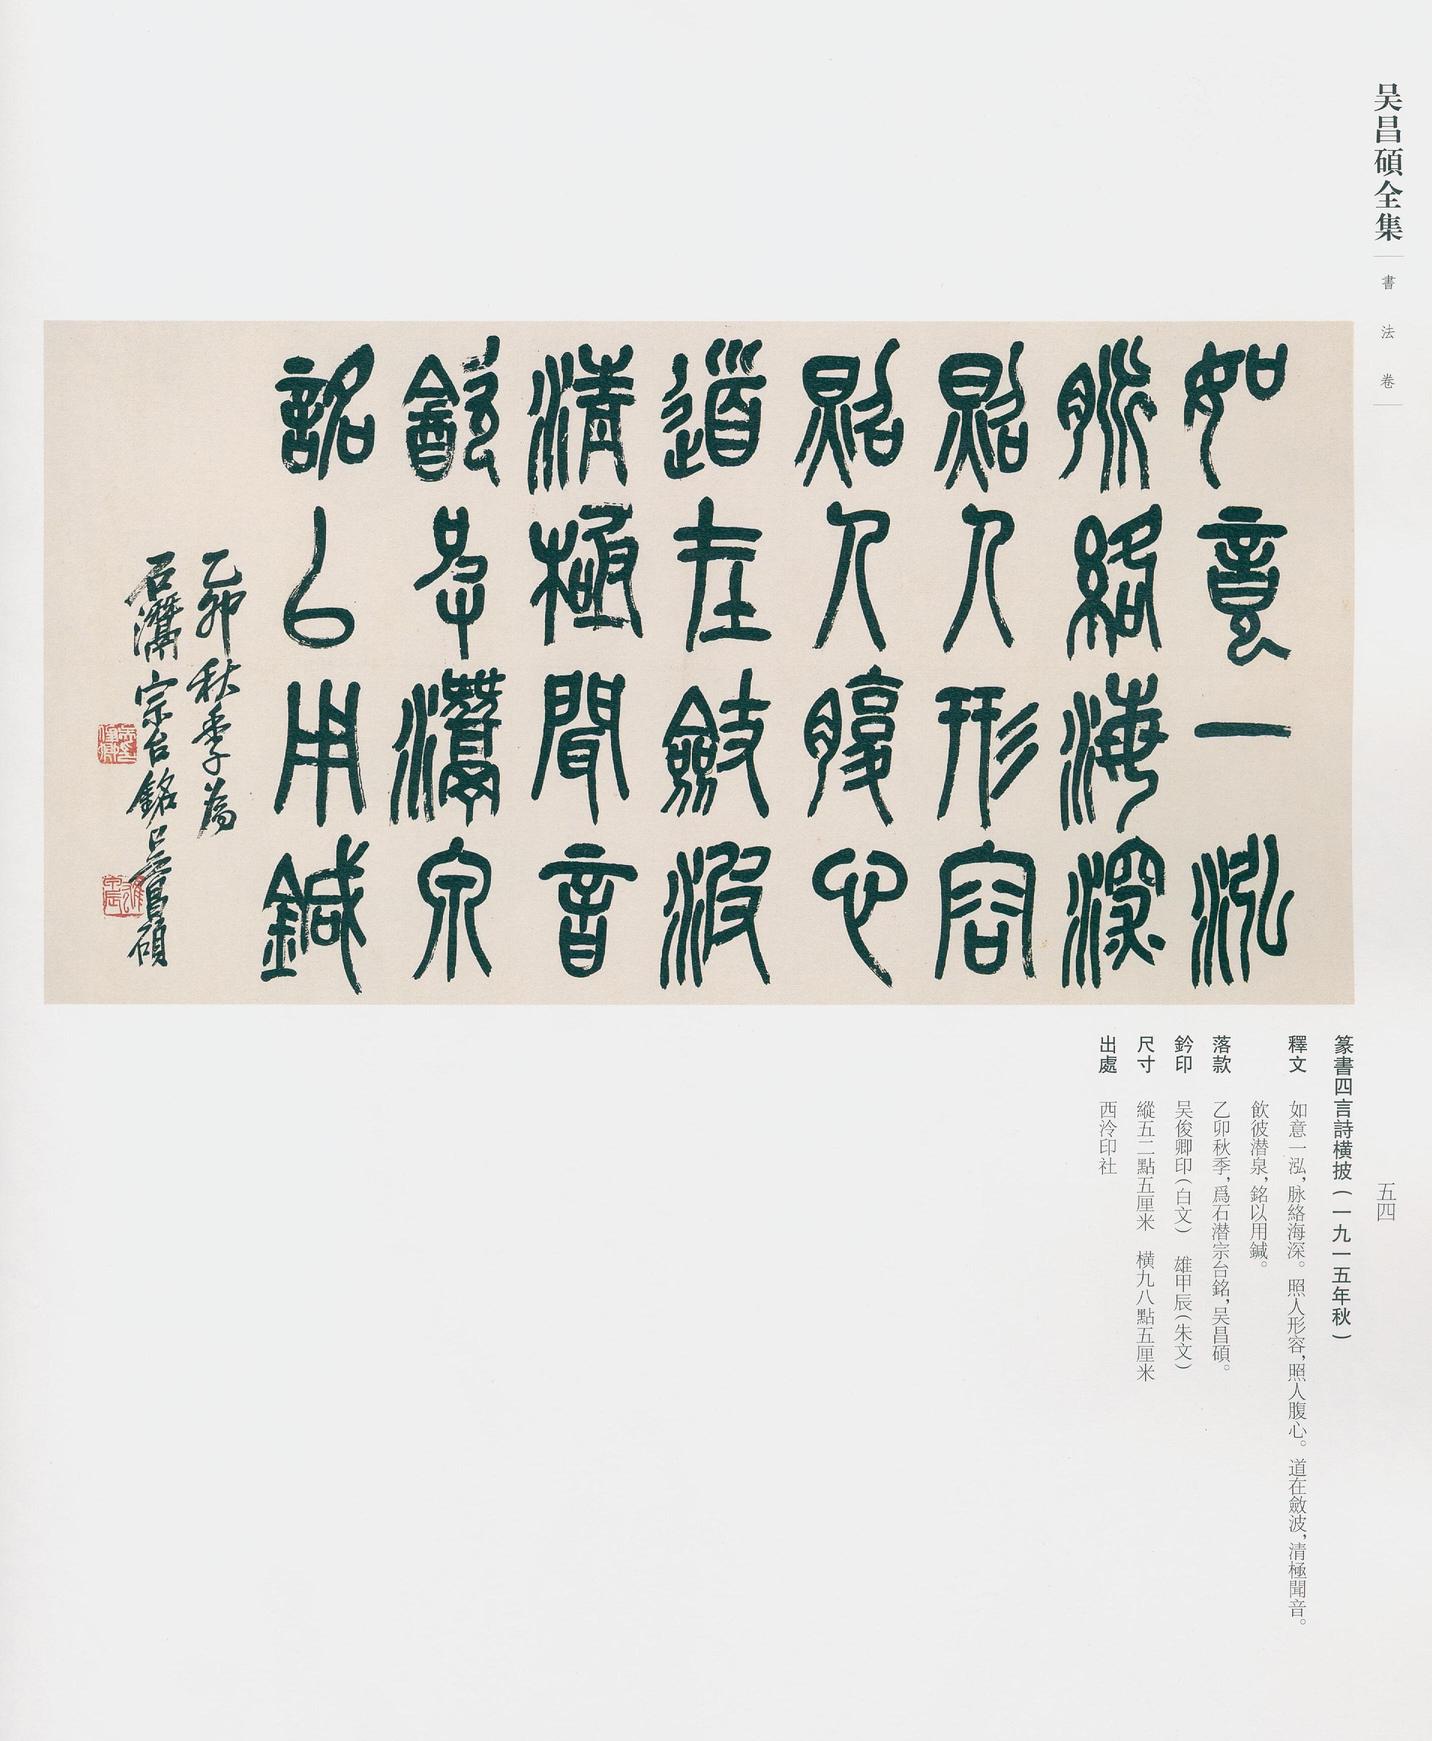 吴昌碩全集
書法卷
五四
如意一泓
脉絡海深
照人形容
照人腹心
道在斂波
清極聞音
飲彼潛泉
銘以用鍼
乙卯秋季為
石潛宗台銘吴昌碩
篆書四言詩橫披（一九一五年秋）
釋文 如意一泓，脉絡海深。照人形容，照人腹心。道在斂波，清極聞音。
飲彼潛泉，銘以用鍼。
落款 乙卯秋季，爲石潛宗台銘，吴昌碩。
鈐印 吴俊卿印（白文） 雄甲辰（朱文）
尺寸 縱五二點五厘米 橫九八點五厘米
出處 西泠印社